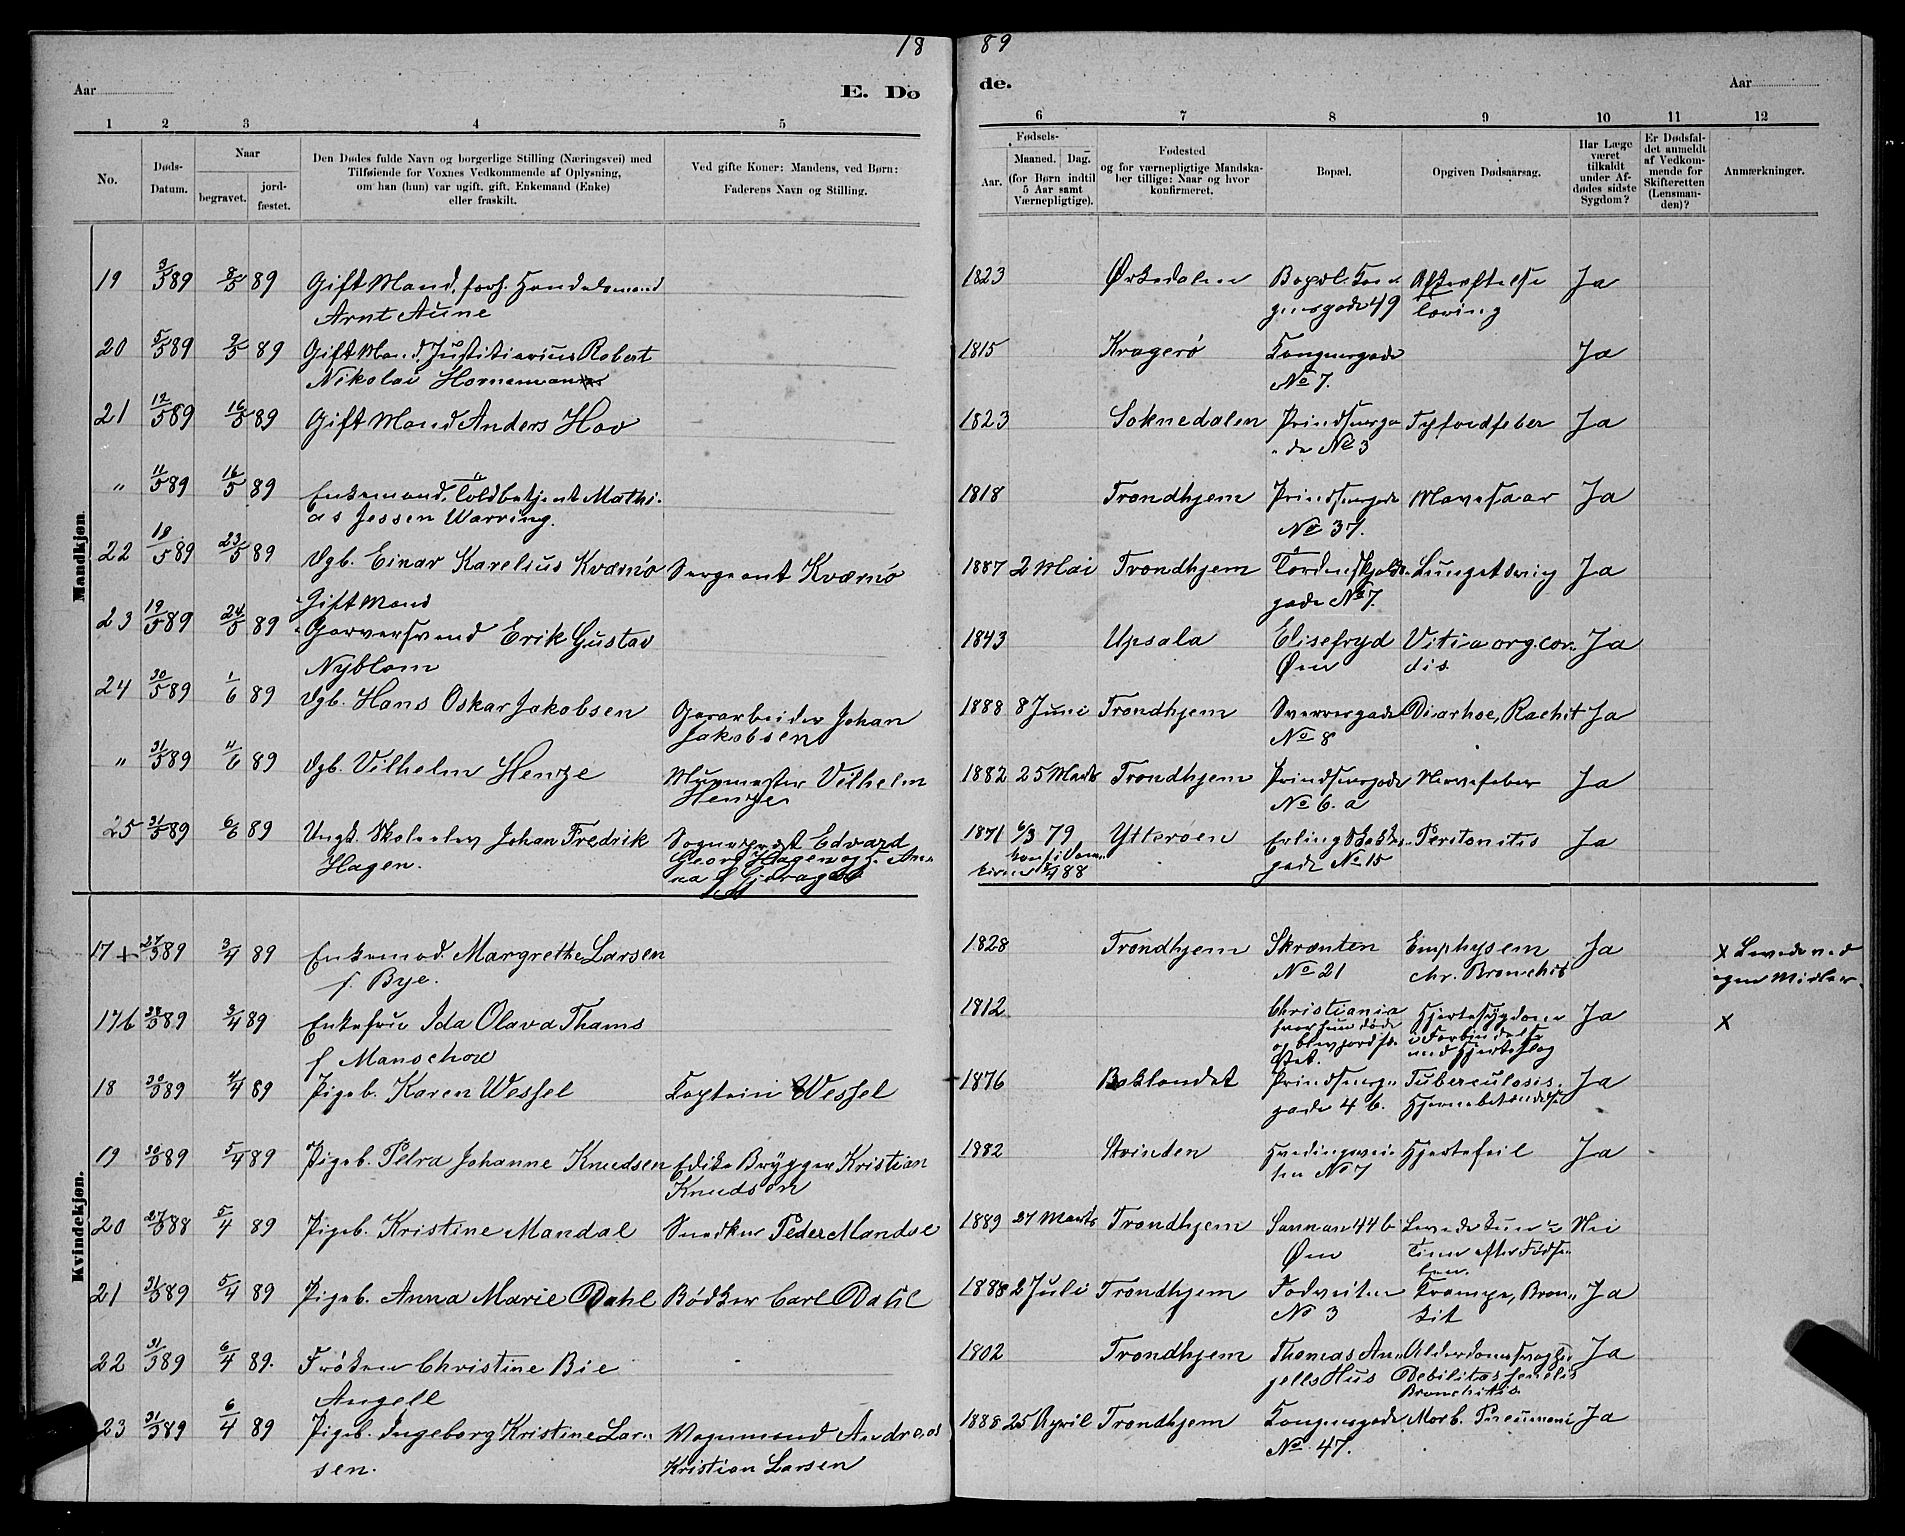 18 89
Aar
E. Dø
de.
Aar
1 2 3 4 5 6 7 8 9 10 11 12
No.
Døds-
Datum.
Naar
begravet.
jord-
fæstet.
Den Dødes fulde Navn og borgerlige Stilling (Næringsvei) med
Tilføiende for Voxnes Vedkommende af Oplysning,
om han (hun) var ugift, gift, Enkemand (Enke)
eller fraskilt.
Ved gifte Koner: Mandens, ved Børn:
Faderens Navn og Stilling.
Fødsels-
Aar.
Maaned.
Dag.
(for Børn indtil
5 Aar samt
Værnepligtige).
Fødested
og for værnepligtige Mandska-
ber tillige: Naar og hvor
konfirmeret.
Bopæl.
Opgiven Dødsaarsag.
Har Læge
været
tilkaldt
under Af-
dødes sidste
Sygdom?
Er Dødsfal-
det anmeldt
af Vedkom-
mende for
Skifteretten
(Lensman-
den)?
Anmærkninger.
Mandkjøn.
19 3/5 89 8/5 89 Gift Mand, forh. Handelsmand 1823 Ørkedalen Ja
Arnt Aune
20 5/5 89 9/5 89 Gift Mand, Justitiarius Robert 1815 Kragerø Kongensgade Ja
Nikolai Hornemann No 7.
21 12/5 89 16/5 89 Gift Mand Anders Hov 1823 Soknedalen Prindsensga Tyfoidfeber Ja
de No 3
" 11/5 89 16/5 89 Enkemand, Toldbetjent Mathi- 1818 Trondhjem Prindsensgade Mavesaar Ja
as Jessen Warring. No 37.
22 18/5 89 23/5 89 Dgb. Einar Karelius Kværnø Sergeant Kværnø 1887 2 Mai Trondhjem Tordenskjolds- Ja
gade No 7.
Gift Mand
23 19/5 89 24/5 89 Garversvend Erik Gustav 1843 Upsala Elisefryd Vitia org. cor- Ja
Nyblom Øen dis
24 30/5 89 1/6 89 Dgb. Hans Oskar Jakobsen Gasarbeider Johan 1888 8 Juni Trondhjem Sverresgade Diarhoe, Rachit Ja
Jakobsen No 8
" 31/5 89 4/6 89 Dgb. Vilhelm Henze Murmester Vilhelm 1882 25 Marts Trondhjem Prindsensgade Nervefeber Ja
Henze No 6. a
25 31/5 89 6/6 89 Ungk. Skoleelev Johan Fredrik Sogneprest Edvard 1871 6/3 79 Ytterøen Erling Skakkes- Peritonitis Ja
Hagen. Georg Hagen og F. An- gade No 15
na f Gjeragel 88
Kvindekjøn.
17 + 27/3 89 3/4 89 Enkemad. Margrethe Larsen 1828 Trondhjem Skrænten Emphysem Ja x Levede ved
f. Bye. No 21 chr. Bronchit egne Midler.
17b 28/3 89 3/4 89 Enkefru Ida Olava Thams 1812 Christiania Hjertesygdom Ja x
f Manschow hvor hun døde i Forbindelse
og blev jordfæ med Hjerteslag
stet.
18 30/3 89 4/4 89 Pigeb. Karen Wessel Captein Wessel 1876 Baklandet Prindsens- Tuberculosis. Ja
gade 4 b. Hjernebetændelse
19 30/3 89 5/4 89 Pigeb. Petra Johanne Knudsen Edike Brygger Kristian 1882 Strinden Hjertefeil Ja
Knudsen No 7
20 27/3 88 5/4 89 Pigeb. Kristine Mandal Snedker Peder Mandal 1889 27 Marts Trondhjem Sannan 44 b Levede kun ½ Nei
Øen Time efter Fødse-
len.
21 31/3 89 5/4 89 Pigeb. Anna Marie Dahl Bødker Carl Dahl 1888 2 Juli Trondhjem Krampe, Bron- Ja
No 3 kit
22 31/3 89 6/4 89. Frøken Christine Bie 1802 Trondhjem Thomas An- Alderdomssvaghed Ja
Angell gells Hus Debilitas senilis
Bronchitis
23 31/3 89 6/4 89 Pigeb. Ingeborg Kristine Lar- Vognmand Andreas 1888 25 April Trondhjem Kongensgade Morb. Pneumoni Ja
sen. Kristian Larsen No 47.